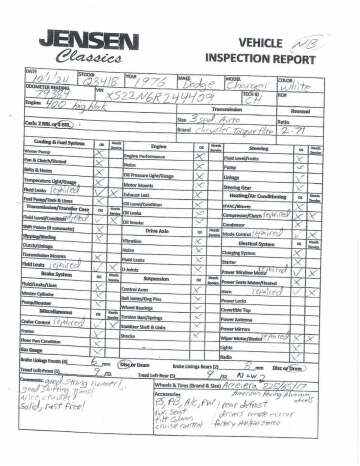 JENSEN
Classics
VEHICLE NB
INSPECTION REPORT
DATE STOCK# YEAR MAKE MODEL COLOR
10/1/24 02418 1976 Dodge Charger White
ODOMETER READING VIN TECH ID RO#
79384 XS22N6R244459
Engine Transmission Rearend
400 Big block Size 3 spd Auto Ratio
Carb: 2 BBL or 4 BBL Brand chrysler Torqueflite 2.71
Cooling & Fuel Systems OK Needs Service
Water Pump
Fan & Clutch/Shroud
Belts & Hoses
Temperature Light/Gauge
Fluid Leaks repaired
Fuel Pump/Tank & Lines
Transmission/Transfer Case OK Needs Service
Fluid Level/Condition repaired
Shift Points (if automatic)
Slipping/Binding
Clutch/Linkage
Transmission Mounts
Fluid Leaks repaired
Brake System OK Needs Service
Fluid/Leaks/Lines
Master Cylinder
Pump/Booster
Miscellaneous OK Needs Service
Cruise Control repaired
Frame
Floor Pan Condition
Gas Gauge
Engine OK Needs Service
Engine Performance
Noises
Oil Pressure Light/Gauge
Motor Mounts
Exhaust
Oil Level/Condition
Oil Leaks
Oil Smoke
Drive Axle OK Needs Service
Vibration
Noise
Fluid Leaks
U-Joints
Suspension OK Needs Service
Control Arms
Ball Joints/King Pins
Wheel Bearings
Torsion Bars/Springs
Stabilizer Shaft & Links
Shocks
Steering OK Needs Service
Fluid Level/Leaks
Pump
Linkage
Steering Effort
Heating/Air Conditioning OK Needs Service
HVAC/Blower
Compressor/Clutch repaired
Condenser
Mode Control repaired
Electrical System OK Needs Service
Charging System
Starter
Power Window Motor repaired
Power Seats Motor/Heated
Horn repaired
Power Locks
Convertible Top
Power Antenna
Power Mirrors
Wiper Motor/Washer repaired
Lights
Radio
Brake Linings Fronts (4) 6 mm Disc or Drum
Tread Left-Front (5) 9 /32
Brake Linings Rears (2) 5 mm Disc or Drum
Tread Left-Rear (5) 9 /32
Comments: good strong runner!,
good shifting trans!
nice cruiser!
solid, rust free!
Wheels & Tires (Brand & Size) Accelera 225/65/17
American Racing Aluminum wheels
Accessories
PS, PB, A/C, PW rear defrost
Tilt drivers remote mirror
cruise control factory AM/FM Stereo